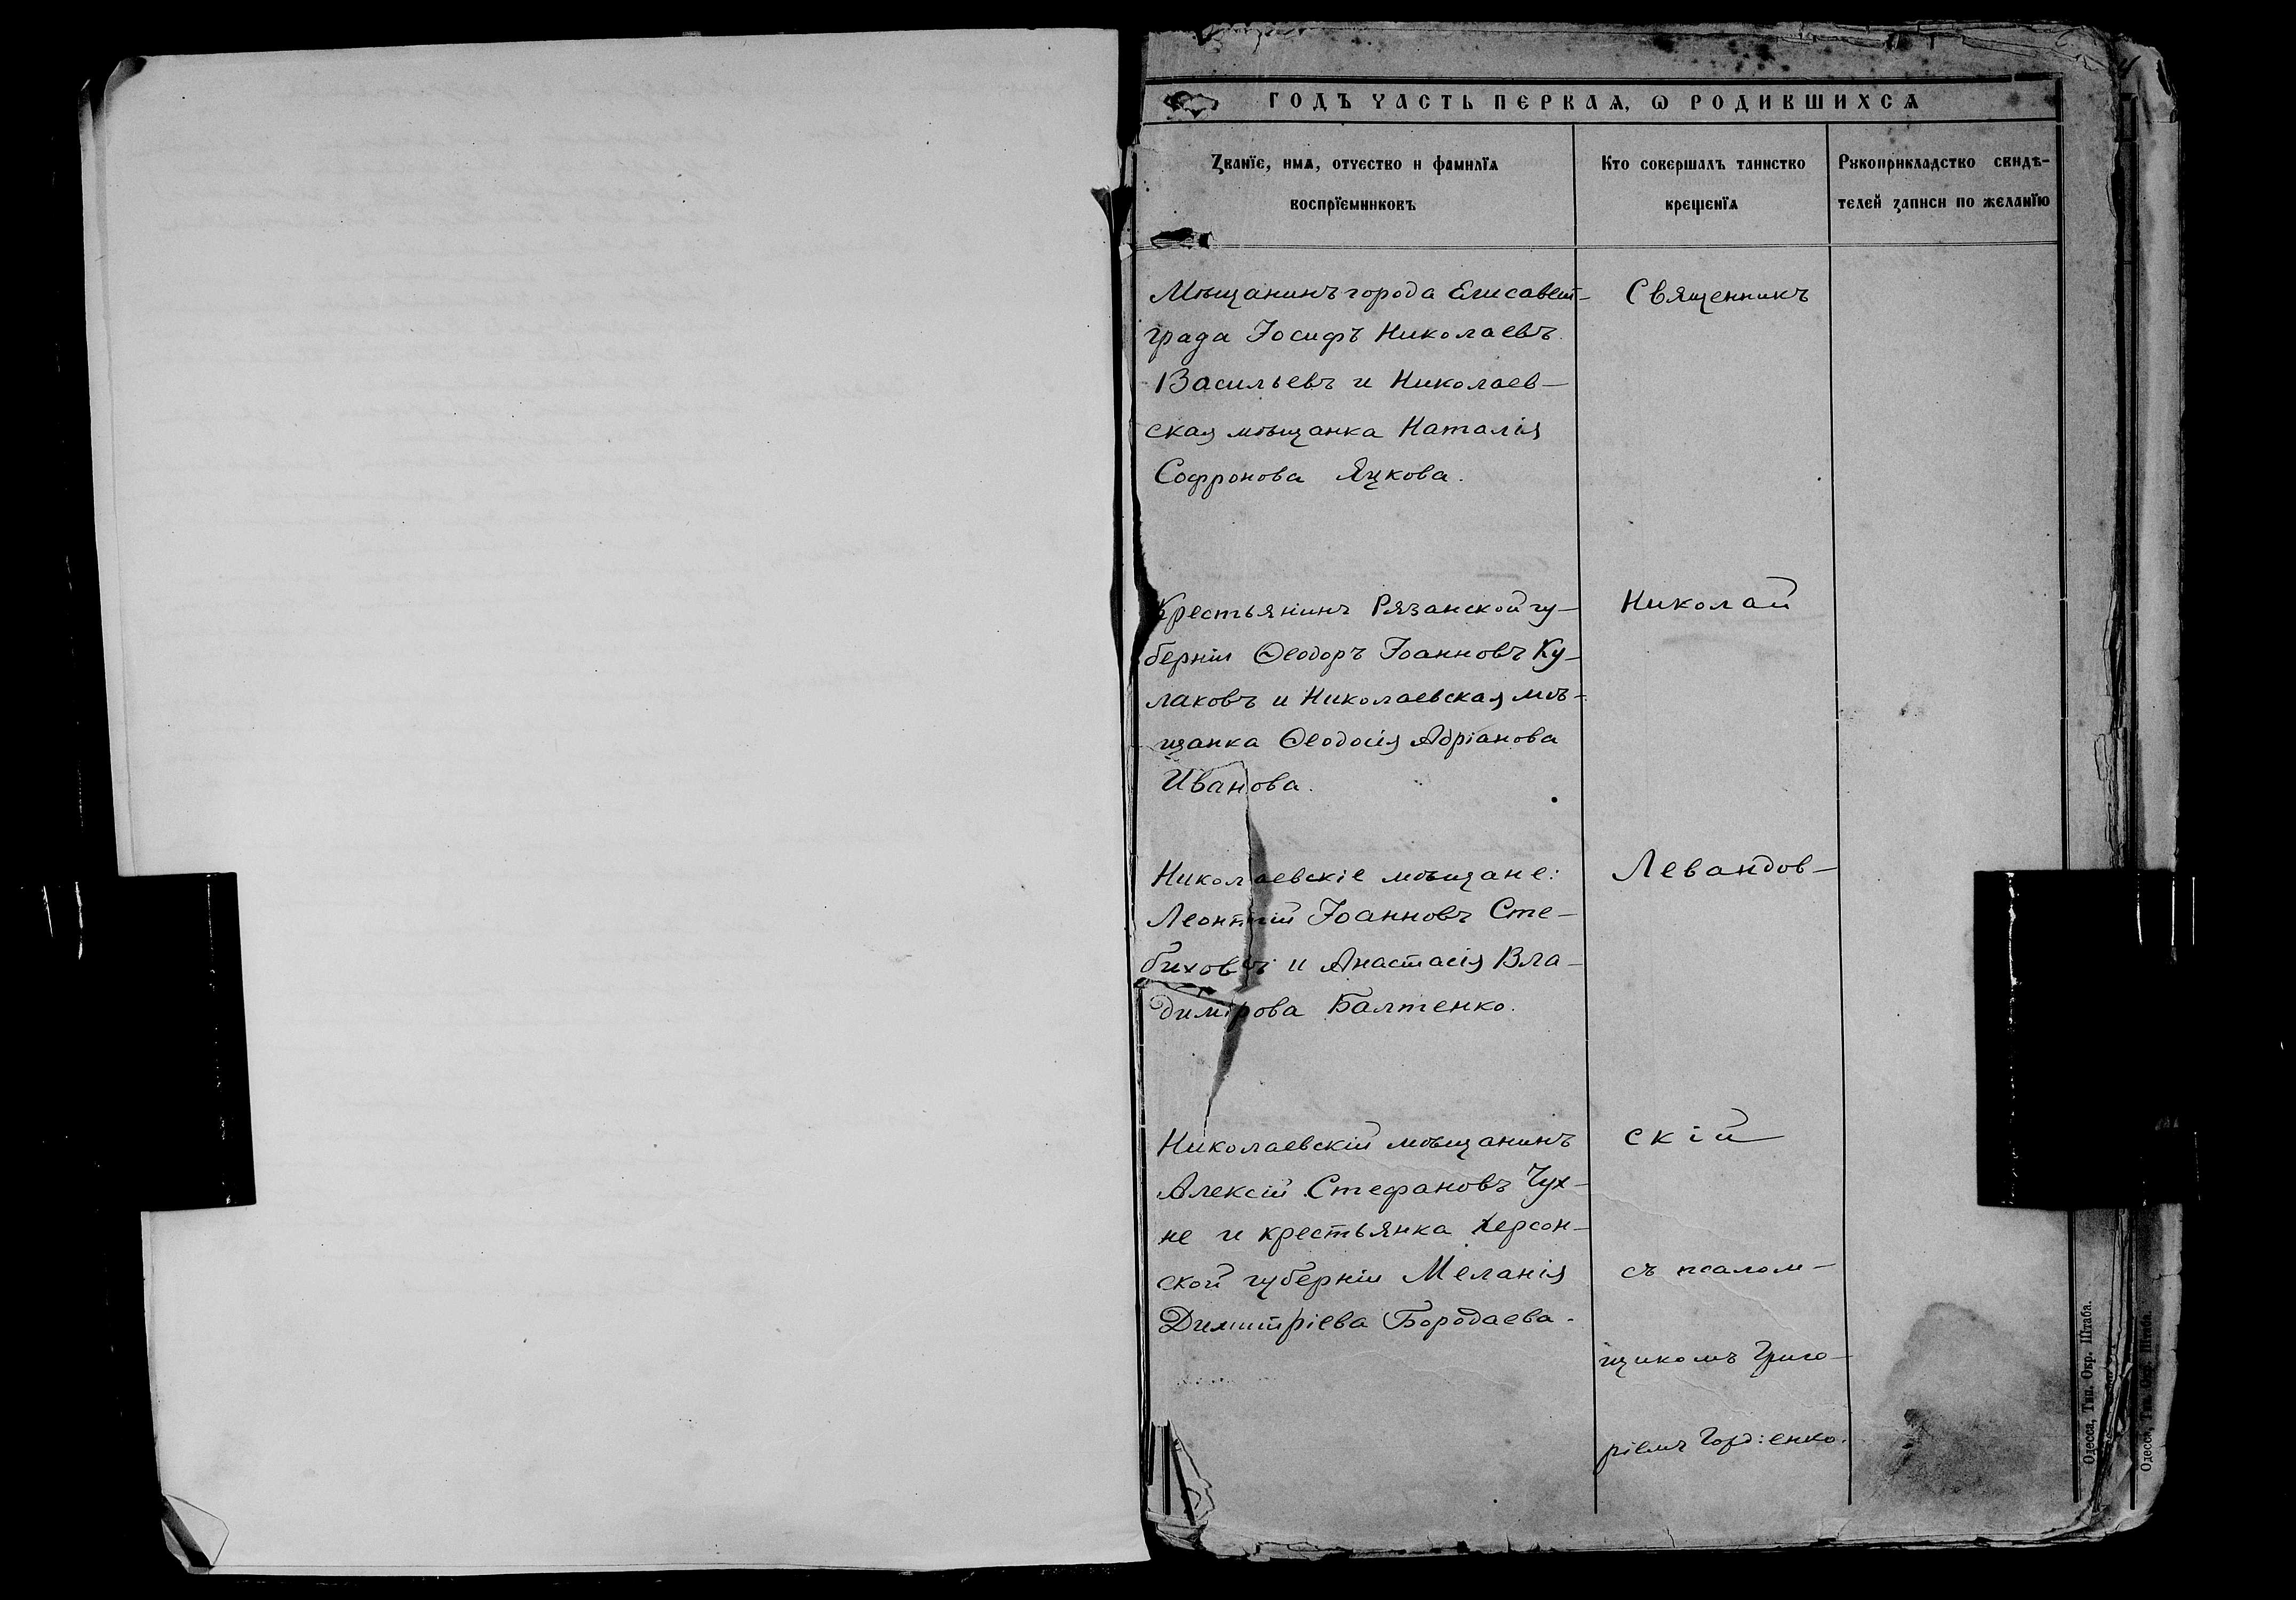 ГОДЪ ЧАСТЬ ПЕРВАѦ, Ѡ РОДИВШИХСѦ
Званїе, имѧ, отчество и фамилїѧ
воспрїемниковъ
Кто совершалъ таинство
крещенїѧ
Рꙋкоприкладство свидѣ-
телей записи по желанїю
Мѣщанинъ города Елисавет-
града Іосифъ Николаевъ
Васильевъ и Николаев-
ская мѣщанка Наталія
Софронова Яцкова.
Крестьянинъ Рязанской гу-
берніи Ѳеодоръ Іоанновъ Ку-
лаковъ и Николаевская мѣ-
щанка Ѳеодосія Адріанова
Иванова.
Николаевскіе мѣщане:
Леонтій Іоанновъ Сте-
биховъ и Анастасія Вла-
димірова Балтенко.
Николаевскій мѣщанинъ
Алексій Стефановъ Чух-
не и крестьянка Херсон-
ской губерніи Меланія
Димитріева Бородаева.
Священникъ
Николай
Левандов-
скій
съ псалом-
щикомъ Григо-
ріемъ Гордіенко.
Одесса, Тип. Окр. Штаба.
Одесса, Тип. Окр. Штаба.